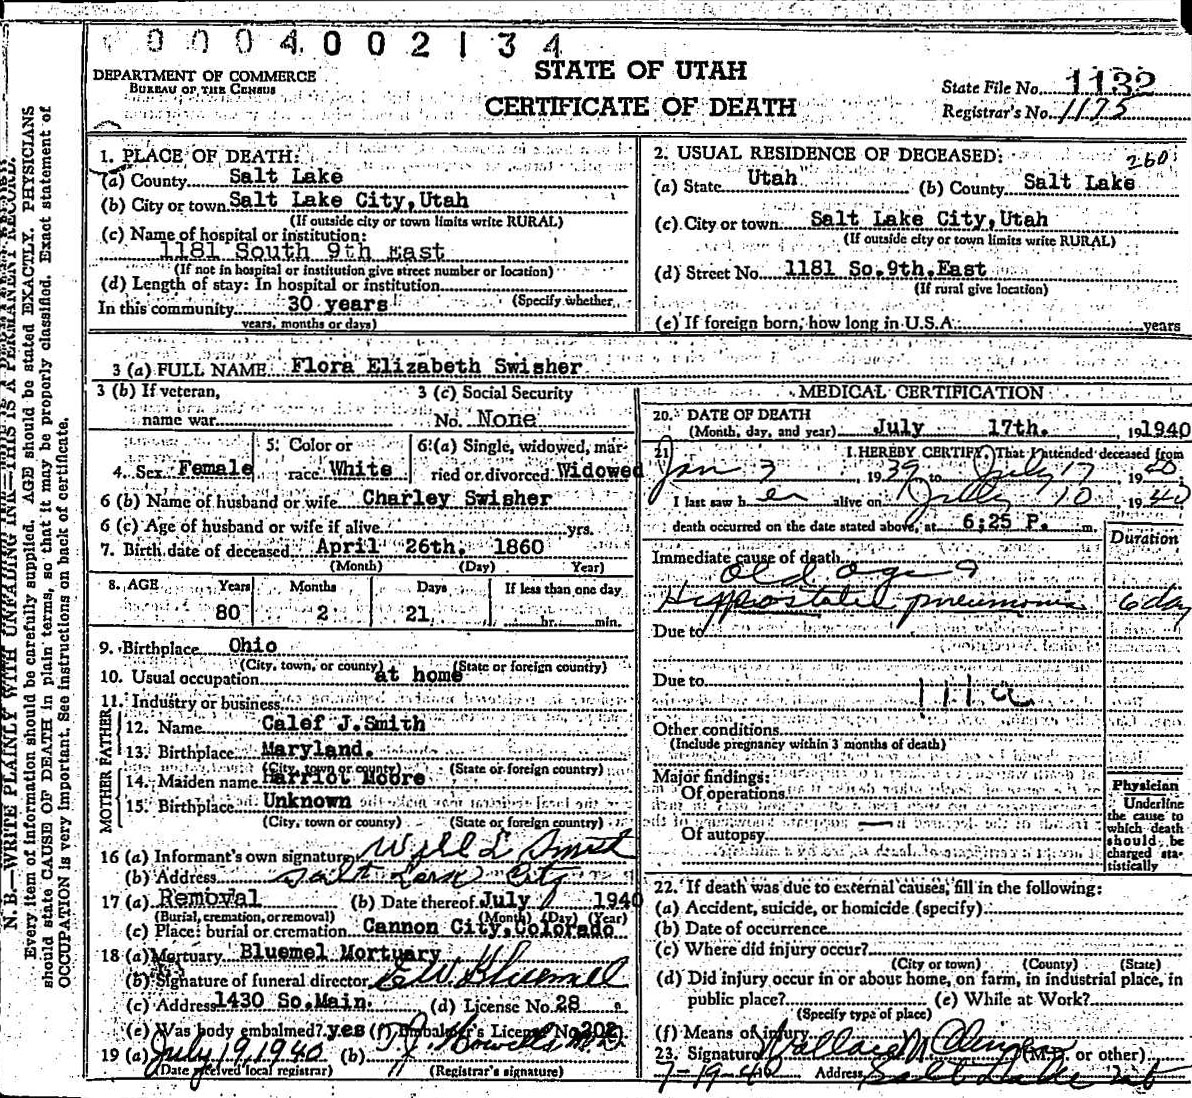 0004002134
DEPARTMENT OF COMMERCE
BUREAU OF THE CENSUS
STATE OF UTAH
CERTIFICATE OF DEATH
State File No. 1132
Registrar's No. 1175
N. B.—WRITE PLAINLY WITH UNFADING INK—THIS IS A PERMANENT RECORD.
Every item of information should be carefully supplied. AGE should be stated EXACTLY. PHYSICIANS
should state CAUSE OF DEATH in plain terms, so that it may be properly classified. Exact statement of
OCCUPATION is very important. See instructions on back of certificate.
1. PLACE OF DEATH:
(a) County Salt Lake
(b) City or town Salt Lake City, Utah
(If outside city or town limits write RURAL)
(c) Name of hospital or institution:
1181 South 9th East
(If not in hospital or institution give street number or location)
(d) Length of stay: In hospital or institution
(Specify whether
In this community 30 years
years, months or days)
2. USUAL RESIDENCE OF DECEASED: 260
(a) State Utah (b) County Salt Lake
(c) City or town Salt Lake City, Utah
(If outside city or town limits write RURAL)
(d) Street No. 1181 So. 9th. East
(If rural give location)
(e) If foreign born, how long in U.S.A. years
3 (a) FULL NAME Flora Elizabeth Swisher
3 (b) If veteran, 3 (c) Social Security
name war No. None
4. Sex Female
5. Color or
race White
6 (a) Single, widowed, mar-
ried or divorced Widowed
6 (b) Name of husband or wife Charley Swisher
6 (c) Age of husband or wife if alive yrs.
7. Birth date of deceased April 26th. 1860
(Month) (Day) Year)
8. AGE Years Months Days If less than one day
80 2 21 hr. min.
9. Birthplace Ohio
(City, town, or county) (State or foreign country)
10. Usual occupation at home
11. Industry or business
FATHER
12. Name Calef J. Smith
13. Birthplace Maryland.
(City, town or county) (State or foreign country)
MOTHER
14. Maiden name Harriot Moore
15. Birthplace Unknown
(City, town or county) (State or foreign country)
16 (a) Informant's own signature Will L Smith
(b) Address Salt Lake City
17 (a) Removal (b) Date thereof July 1940
(Burial, cremation, or removal) (Month) (Day) (Year)
(c) Place: burial or cremation Cannon City, Colorado
18 (a) Mortuary Bluemel Mortuary
(b) Signature of funeral director E W Bluemel
(c) Address 1430 So. Main. (d) License No. 28
(e) Was body embalmed? yes (f) Embalmer's License No. 202
19 (a) July 19, 1940 (b) T. J. Howells M.D.
(Date received local registrar) (Registrar's signature)
MEDICAL CERTIFICATION
20. DATE OF DEATH
(Month, day, and year) July 17th. 1940
21. I HEREBY CERTIFY, That I attended deceased from
Jan 3, 1939 to July 17, 1940
I last saw her alive on July 10 1940
death occurred on the date stated above, at 6:25 P. m.
Duration
Immediate cause of death
Old age
Hyppostatic pneumonia 6 day
Due to
Due to
111a
Other conditions
(Include pregnancy within 3 months of death)
Major findings:
Of operations
Of autopsy
Physician
Underline
the cause to
which death
should be
charged sta-
tistically
22. If death was due to external causes, fill in the following:
(a) Accident, suicide, or homicide (specify)
(b) Date of occurrence
(c) Where did injury occur?
(City or town) (County) (State)
(d) Did injury occur in or about home, on farm, in industrial place, in
public place? (e) While at Work?
(Specify type of place)
(f) Means of injury
23. Signature Wallace M. (M.D. or other)
7-19-40 Address Salt Lake